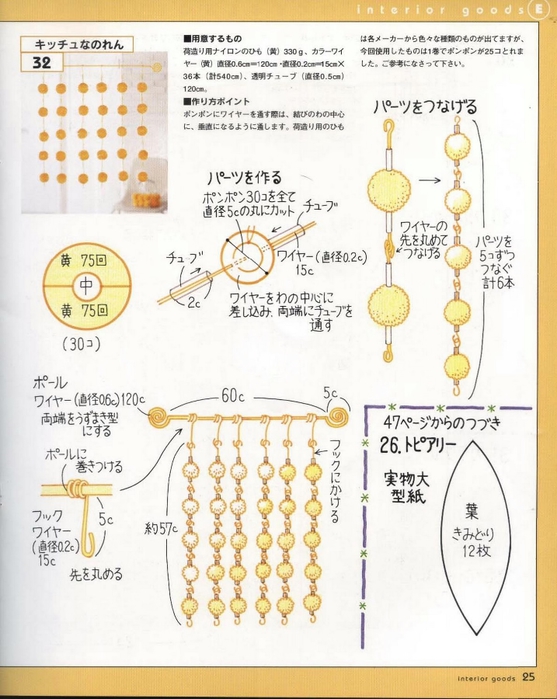 interior goods E
キッチュなのれん
32
■用意するもの
荷造り用ナイロンのひも（黄）330g、カラーワイ
ヤー（黄）直径0.6cm＝120cm・直径0.2cm＝15cm×
36本（計540cm）、透明チューブ（直径0.5cm）
120cm。
■作り方ポイント
ポンポンにワイヤーを通す際は、結びのわの中心
に、垂直になるように通します。荷造り用のひも
は各メーカーから色々な種類のものが出てますが、
今回使用したものは1巻でポンポンが25コとれま
した。ご参考になさって下さい。
パーツを作る
ポンポン30コを全て
直径5cの丸にカット
チューブ
ワイヤー(直径0.2c)
15c
チューブ
2c
ワイヤーをわの中心に
差し込み、両端にチューブを
通す
黄 75回
中
黄 75回
(30コ)
パーツをつなげる
ワイヤーの
先を丸めて
つなげる
パーツを
5コずつ
つなぐ
計6本
ポール
ワイヤー(直径0.6c)120c
両端をうずまき型
にする
60c
5c
ポールに
巻きつける
フック
ワイヤー
(直径0.2c)
15c
5c
先を丸める
約57c
フックにかける
47ページからのつづき
26.トピアリー
実物大
型紙
葉
きみどり
12枚
interior goods 25